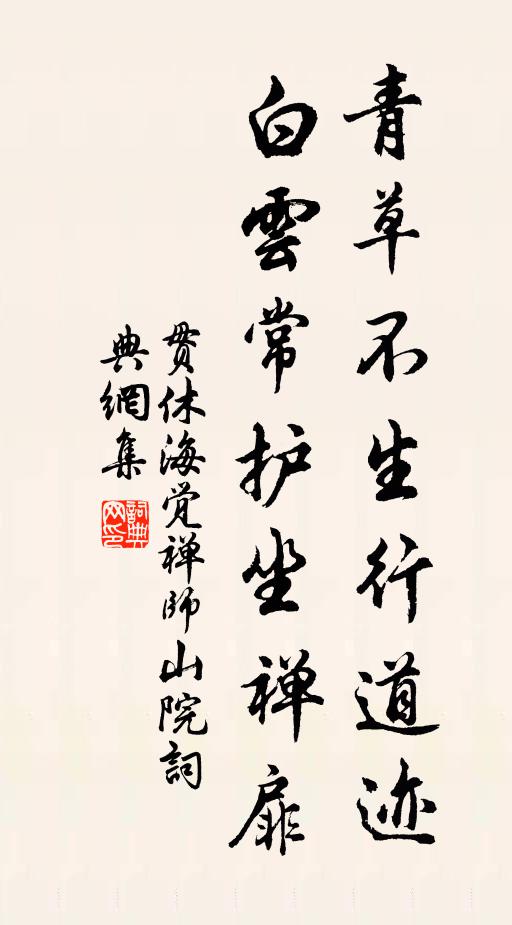 青草不生行道迹
白雲常护坐禅扉
贯休海觉禅師山院詞
典網集
詞典
网印